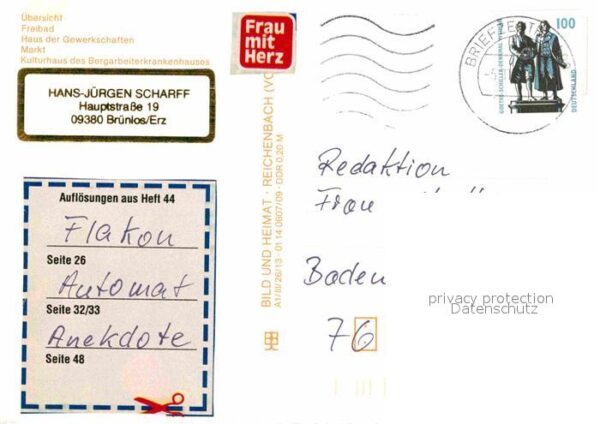 Übersicht
Freibad
Haus der Gewerkschaften
Markt
Kulturhaus des Bergarbeiterkrankenhauses
HANS-JÜRGEN SCHARFF
Hauptstraße 19
09380 Brünlos/Erz
Auflösungen aus Heft 44
Flakon
Seite 26
Automat
Seite 32/33
Anekdote
Seite 48
Frau
mit
Herz
BILD UND HEIMAT · REICHENBACH (VO
A1/III/26/13 · 01 14 0807/09 · DDR 0,20 M
BRIEFZENT
100
GOETHE-SCHILLER-DENKMAL WEIMAR
DEUTSCHLAND
Redaktion
Frau
Baden
76
privacy protection
Datenschutz